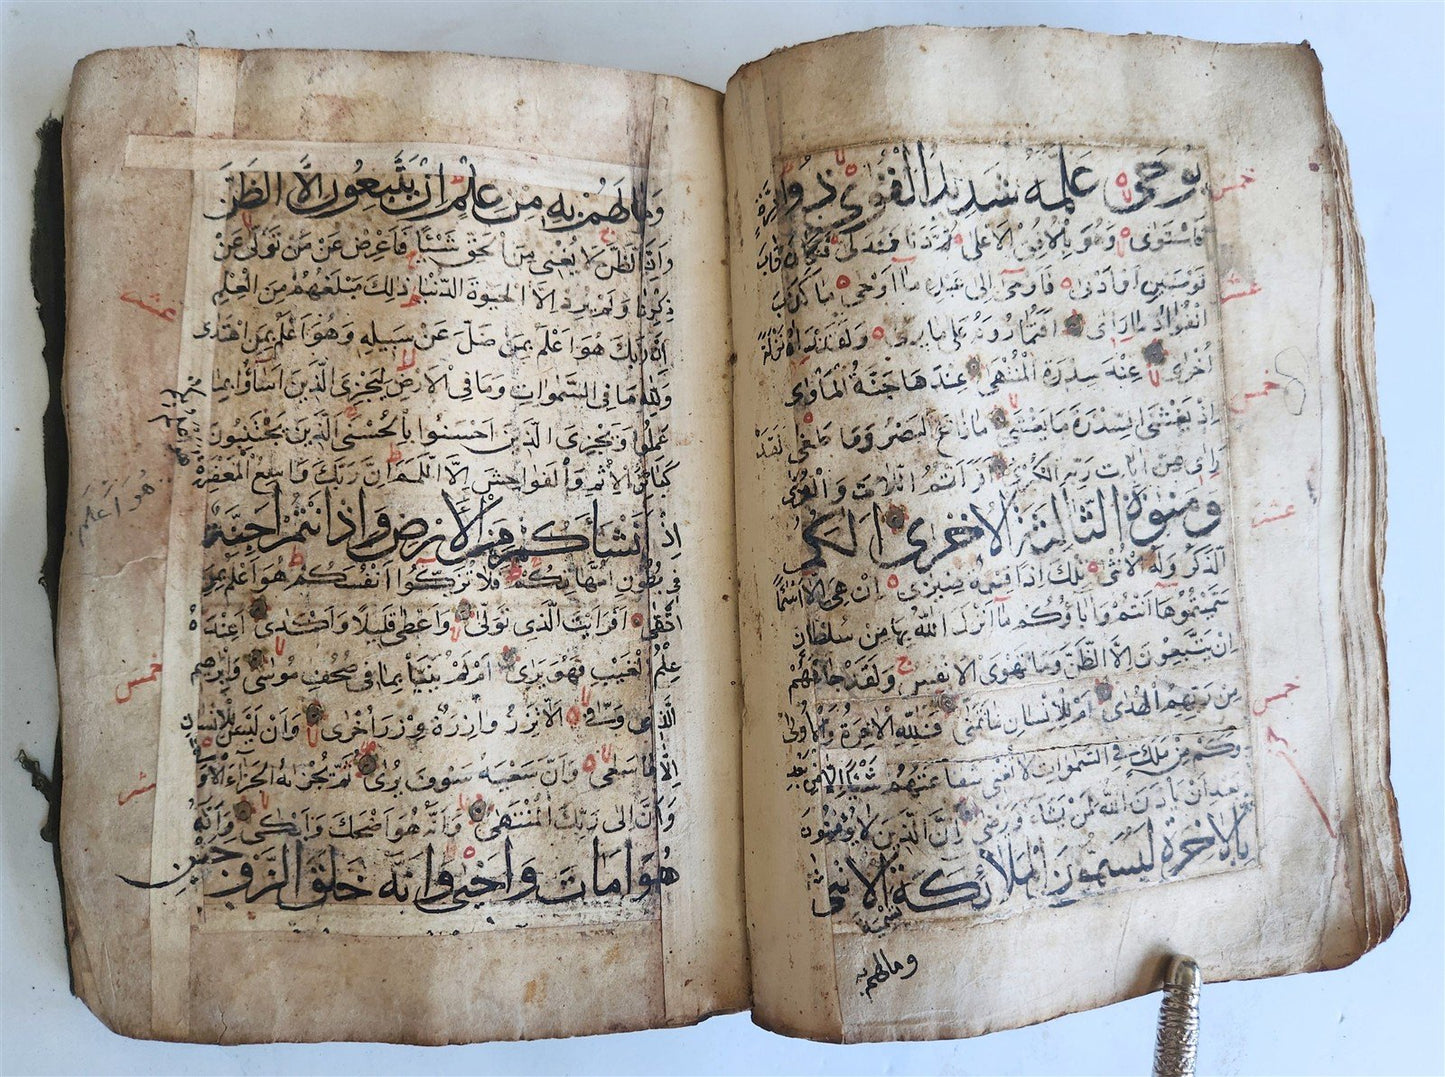 يوحى علمه شديد القوى ذو مرة
فاستوى وهو بالافق الاعلى ثم دنا فتدلى فكان قاب
قوسين او ادنى فاوحى الى عبده ما اوحى ما كذب
الفؤاد ما راى افتمارونه على ما يرى ولقد راه نزلة
اخرى عند سدرة المنتهى عندها جنة الماوى
اذ يغشى السدرة ما يغشى ما زاغ البصر وما طغى لقد
راى من ايات ربه الكبرى افرايتم اللات والعزى
ومنوة الثالثة الاخرى الكم
الذكر وله الانثى تلك اذا قسمة ضيزى ان هي الا اسماء
سميتموها انتم واباؤكم ما انزل الله بها من سلطان
ان يتبعون الا الظن وما تهوى الانفس ولقد جاءهم
من ربهم الهدى ام للانسان ما تمنى فلله الاخرة والاولى
وكم من ملك في السموات لا تغنى شفاعتهم شيئا الا من بعد
بعد ان ياذن الله لمن يشاء ويرضى ان الذين لا يؤمنون
بالاخرة ليسمون الملائكة الانثى
تسمية
وما لهم به
خمس
عشر
خمس
عشر
خمس
وما لهم به من علم ان يتبعون الا الظن
وان الظن لا يغنى من الحق شيئا فاعرض عن من تولى عن
ذكرنا ولم يرد الا الحيوة الدنيا ذلك مبلغهم من العلم
ان ربك هو اعلم بمن ضل عن سبيله وهو اعلم بمن اهتدى
ولله ما فى السموات وما فى الارض ليجزى الذين اساؤا بما
عملوا ويجزى الذين احسنوا بالحسنى الذين يجتنبون
كبائر الاثم والفواحش الا اللمم ان ربك واسع المغفرة
اذ انشاكم من الارض واذ انتم اجنة
فى بطون امهاتكم فلا تزكوا انفسكم هو اعلم بمن
اتقى افرايت الذى تولى واعطى قليلا واكدى اعنده
علم الغيب فهو يرى ام لم ينبا بما فى صحف موسى وابرهيم
الذى وفى الا تزر وازرة وزر اخرى وان ليس للانسان
الا ما سعى وان سعيه سوف يرى ثم يجزيه الجزاء الاوفى
وان الى ربك المنتهى وانه هو اضحك وابكى وانه
هو امات واحيى وانه خلق الزوجين
عشر
هو اعلم
خمس
عشر